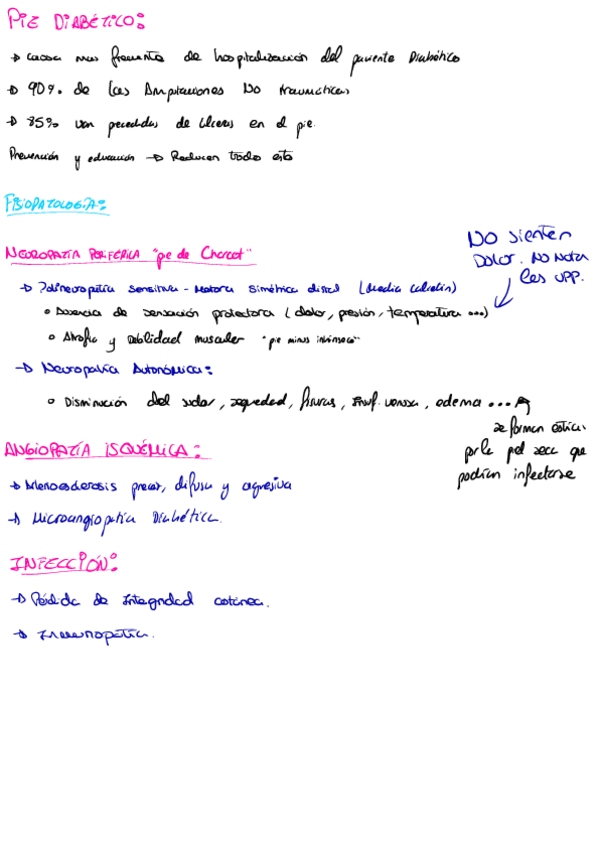 PIE DIABÉTICO:
→ causa mas frecuente de hospitalización del paciente Diabético
→ 90% de las Amputaciones No traumáticas
→ 85% van precedidas de úlceras en el pie.
Prevención y educación → Reducen todo esto
FISIOPATOLOGÍA:
NEUROPATÍA PERIFÉRICA "pie de Charcot"
→ Polineuropatía sensitiva - Motora simétrica distal (Media calcetín)
Ausencia de sensación protectora (dolor, presión, temperatura ...)
Atrofia y debilidad muscular "pie minus intrinseco"
NO sienten
Dolor. No notan
les UPP.
→ Neuropatía Autonómica:
Disminución del sudor, sequedad, fisuras, Insuf. venosa, edema ...
se forman
por la piel seca que
podrían infectarse
ANGIOPATÍA ISQUÉMICA:
→ Aterosclerosis precoz, difusa y agresiva
→ Microangiopatía Diabética.
INFECCIÓN:
→ Pérdida de Integridad cutánea.
→ Inmunopatía.